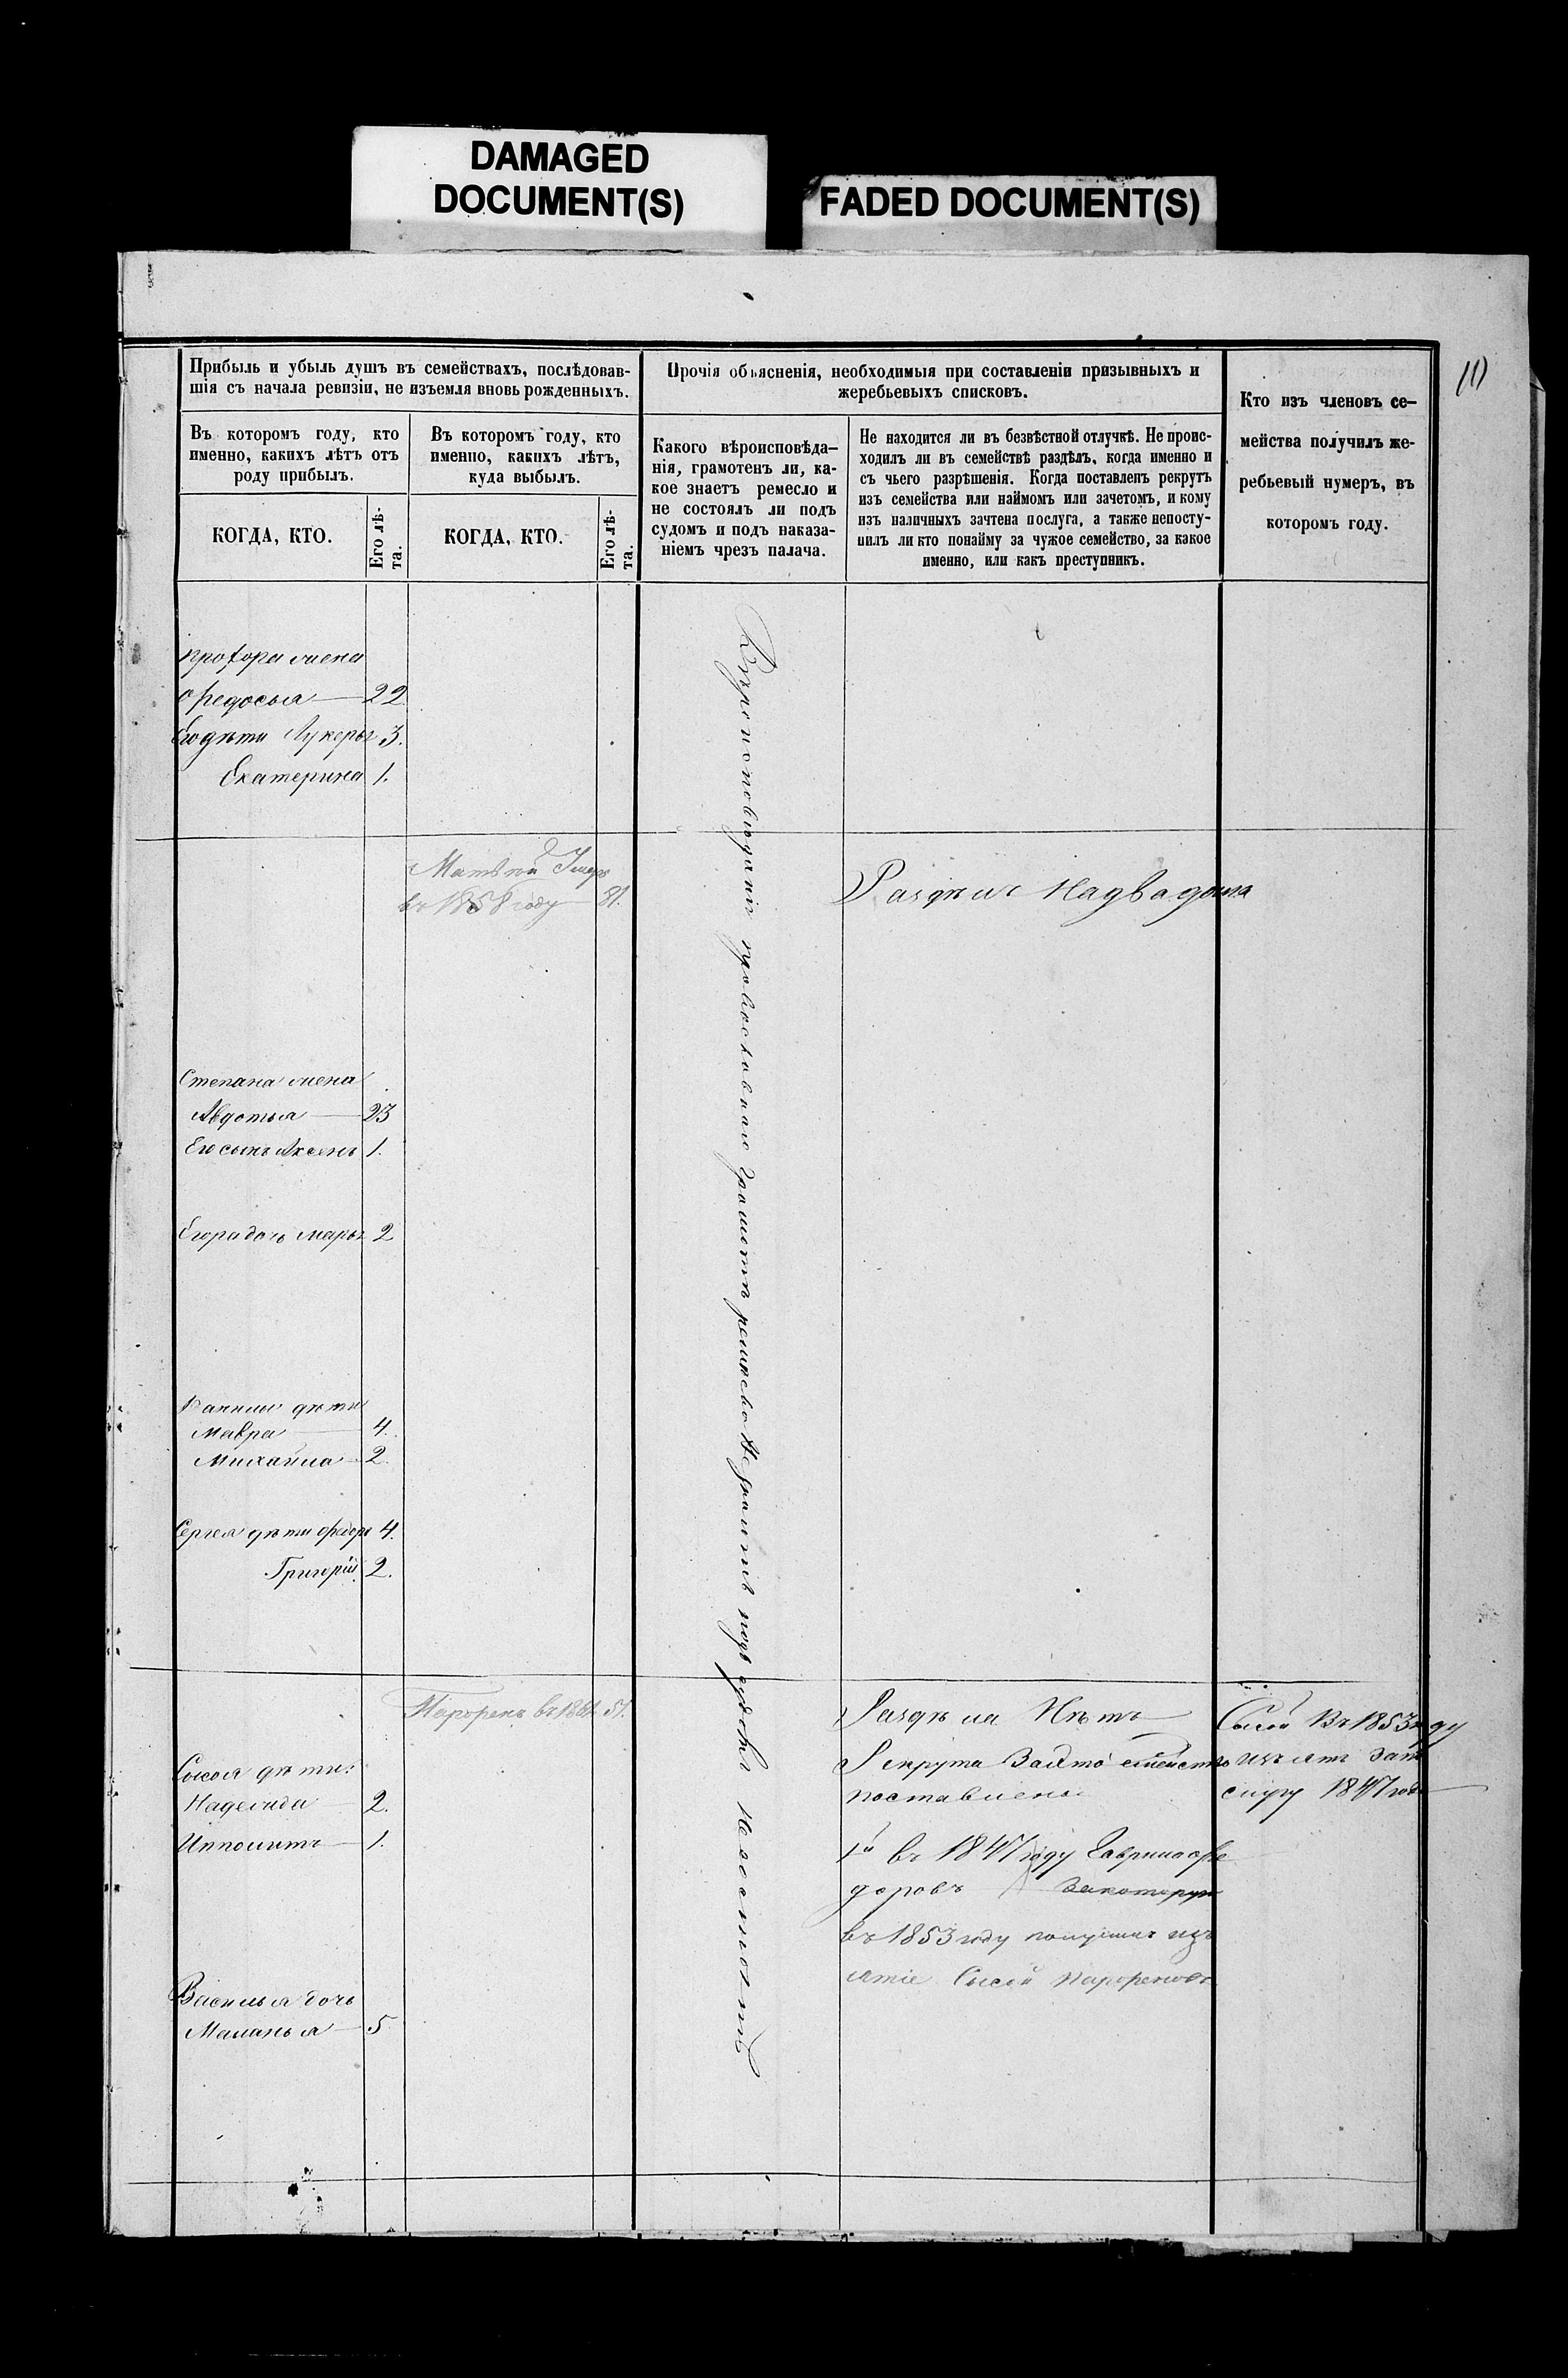 DAMAGED
DOCUMENT(S)
FADED DOCUMENT(S)
Прибыль и убыль душъ въ семействахъ, послѣдовав-
шія съ начала ревизіи, не изъемля вновь рожденныхъ.
Прочія объясненія, необходимыя при составленіи призывныхъ и
жеребьевыхъ списковъ.
Кто изъ членовъ се-
мейства получилъ же-
ребьевый нумеръ, въ
которомъ году.
Въ которомъ году, кто
именно, какихъ лѣтъ отъ
роду прибылъ.
Въ которомъ году, кто
именно, какихъ лѣтъ,
куда выбылъ.
Какого вѣроисповѣда-
нія, грамотенъ ли, ка-
кое знаетъ ремесло и
не состоялъ ли подъ
судомъ и подъ наказа-
ніемъ чрезъ палача.
Не находится ли въ безвѣстной отлучкѣ. Не проис-
ходилъ ли въ семействѣ раздѣлъ, когда именно и
съ чьего разрѣшенія. Когда поставленъ рекрутъ
изъ семейства или наймомъ или зачетомъ, и кому
изъ наличныхъ зачтена послуга, а также непосту-
пилъ ли кто понайму за чужое семейство, за какое
именно, или какъ преступникъ.
КОГДА, КТО.
Его лѣ-
та.
КОГДА, КТО.
Его лѣ-
та.
Прохора жена
Федосья — 22
Его дѣти Лукерья 3.
Екатерина 1.
Матвѣй Умеръ
въ 1858 году — 81.
Раздѣлъ На два дома
Степана жена
Авдотья — 23
Его сынъ Аксенъ 1.
Егора дочь Марья 2
дѣти
Мавра — 4.
Михайла — 2.
Сергея дѣти Федоръ 4.
Григорій 2.
Вѣроисповѣданія православнаго грамотѣ ремесло подъ судомъ несостоитъ
51.
Раздѣла Нѣтъ
Рекрута
поставлено
1й въ 1847 году Гаврила Фе
доровъ
въ 1853 году получилъ изъ
ятіе Сысой
Сысой Въ 1853 году
изъятъ
1847 года
Сысоя дѣти:
Надежда — 2.
Ипполитъ — 1.
Василья дочь
Маланья — 5